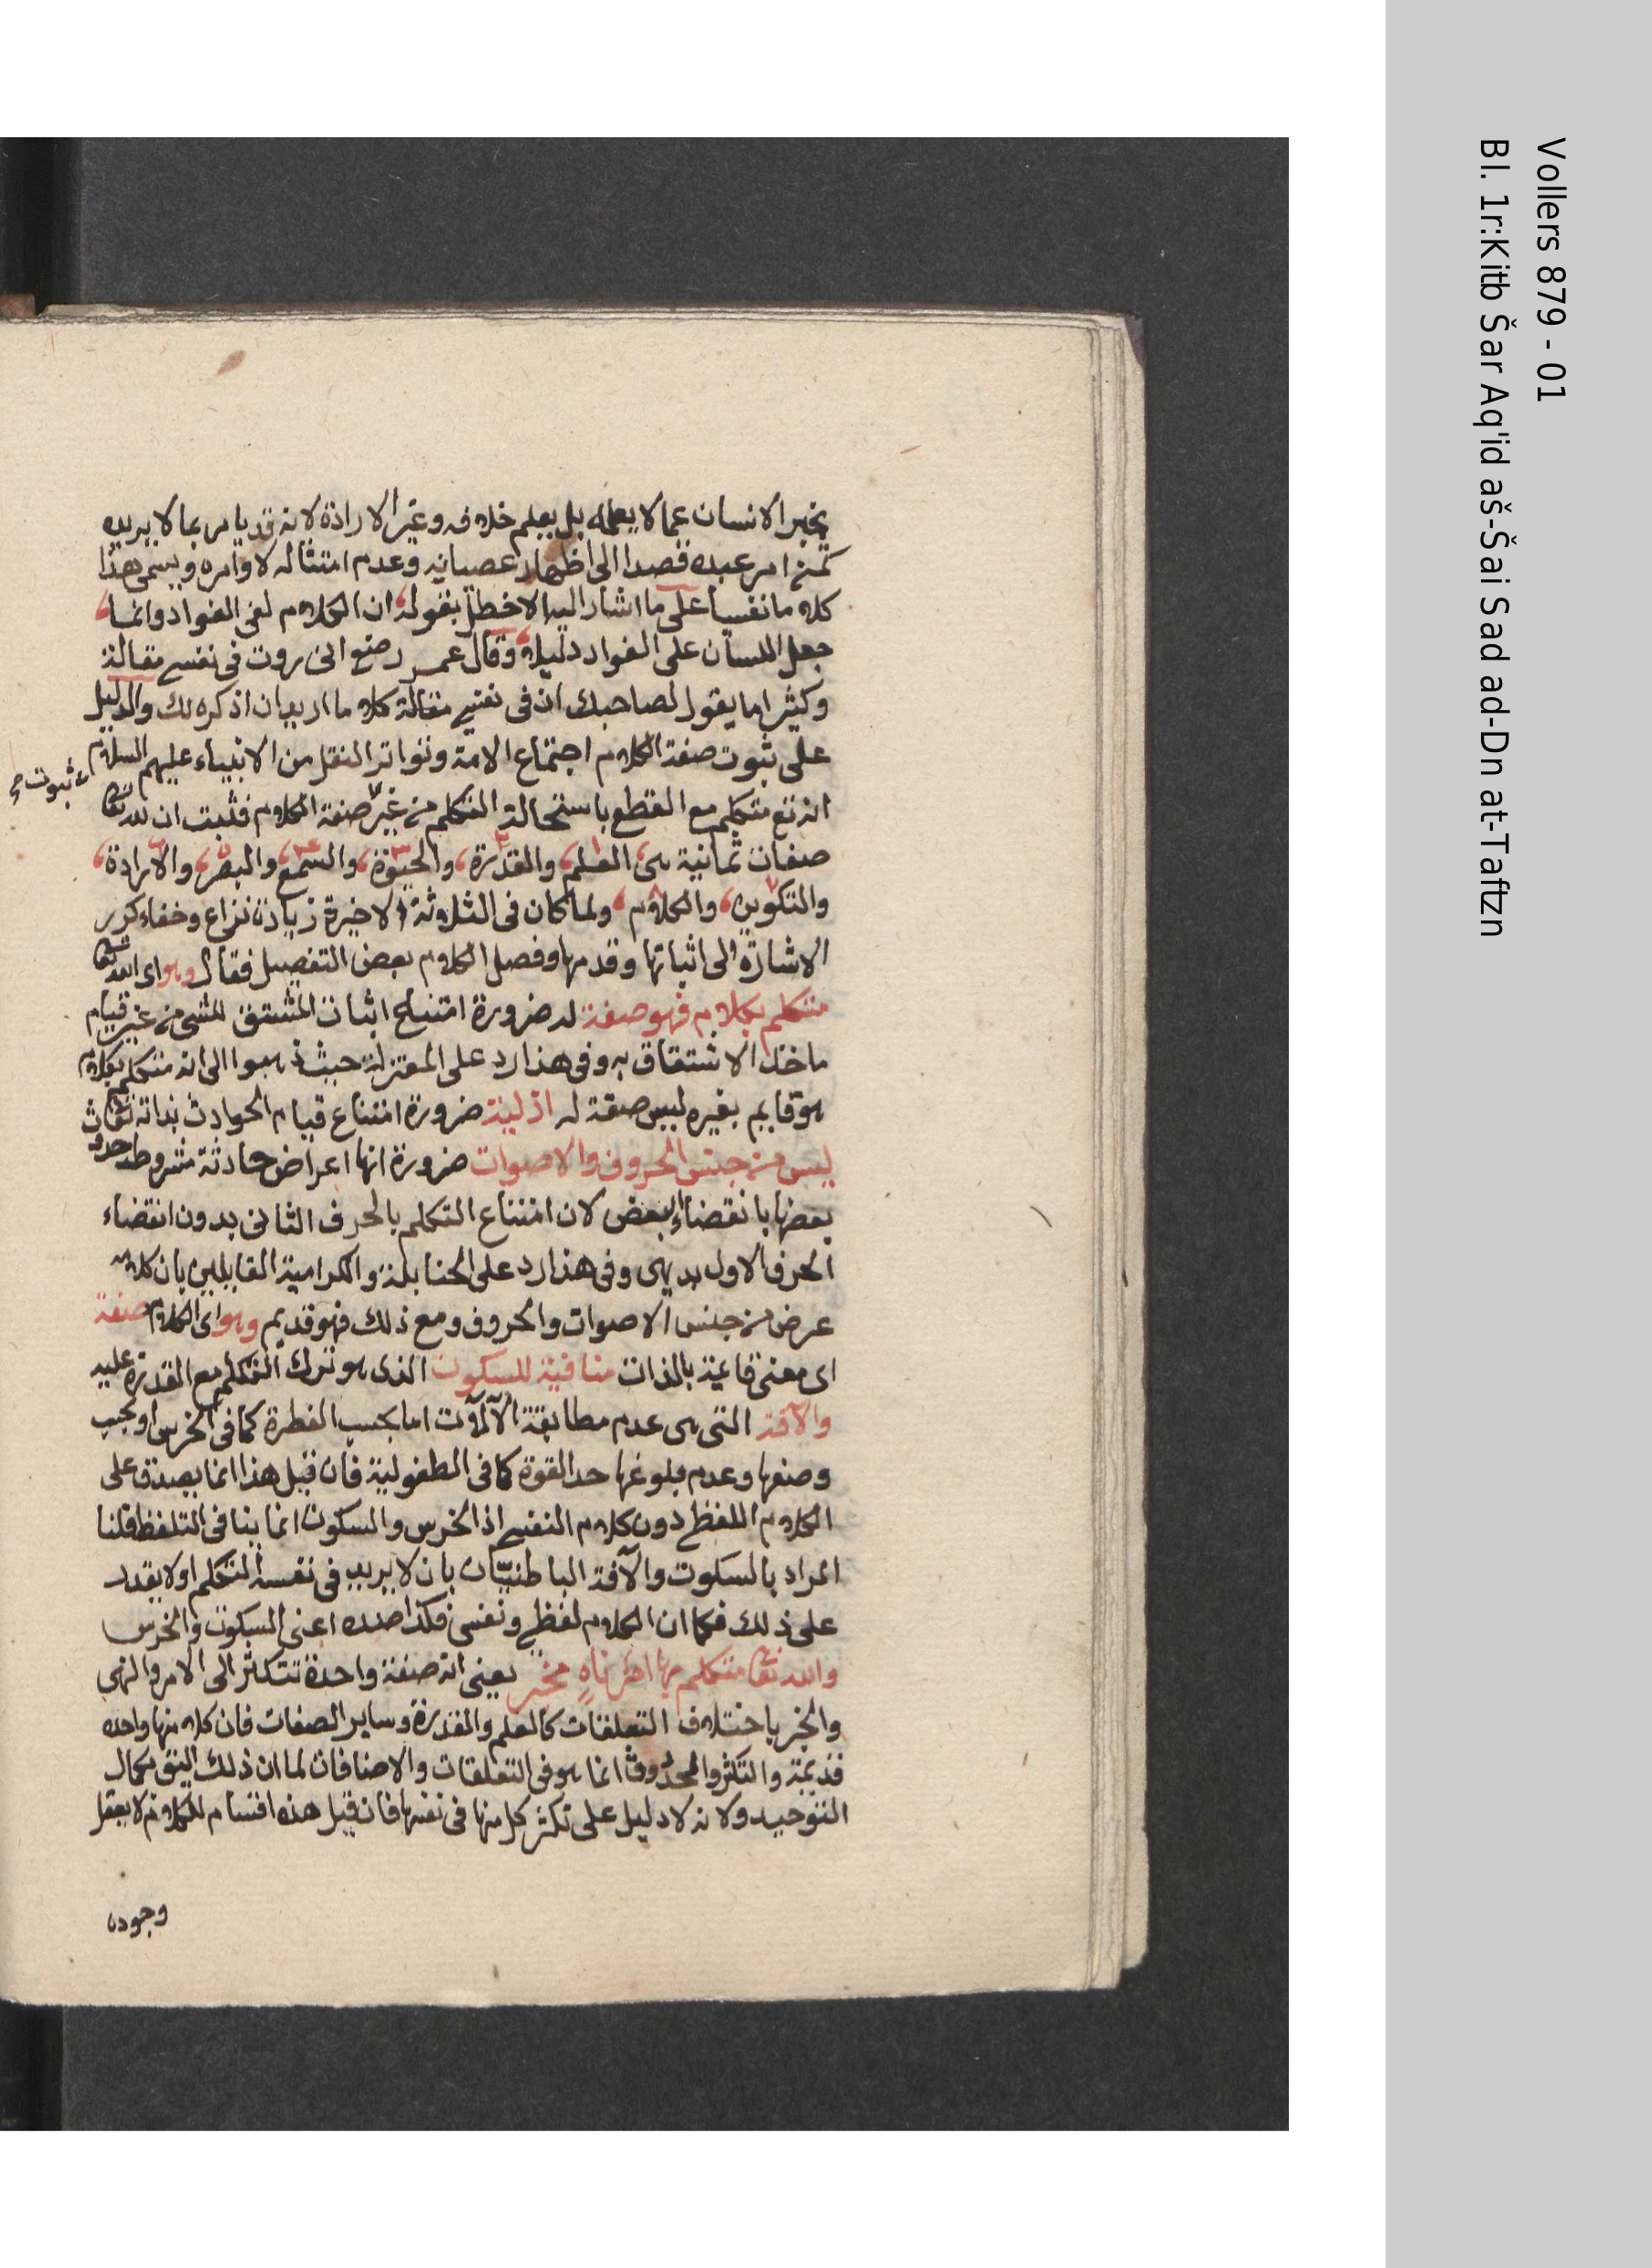 يخبر الانسان عما لا يعلمه بل يعلم خلافه وغير الارادة لانه قد يامر بما لا يريده
كمن امر عبده قصدا الى اظهار عصيانه وعدم امتثاله لاوامره ويسمى هذا
كلاما نفسيا على ما اشار اليه الاخطل بقوله ان الكلام لفى الفواد وانما
جعل اللسان على الفواد دليلا وقال عمر رضع انى زورت فى نفسى مقالة
وكثيرا ما يقول لصاحبك ان فى نفسى مقالة كلاما اريد ان اذكره لك والدليل
على ثبوت صفة الكلام اجتماع الامة وتواتر النقل من الانبياء عليهم السلام
ثبوت صح
انه تع متكلم مع القطع باستحالة التكلم من غير صفة الكلام فثبت ان لله تعا
صفات ثمانية هى العلم والقدرة والحيوة والسمع والبصر والارادة
والتكوين والكلام ولما كان فى الثلاثة الاخيرة زيادة نزاع وخفاء كرر
الاشارة الى اثباتها وقدمها وفصل الكلام بعض التفصيل فقال وهو اى الله تعا
متكلم بكلام فهو صفة له ضرورة امتناع اثبات المشتق للشى من غير قيام
ماخذ الاشتقاق به وفى هذا رد على المعتزلة حيث ذهبوا الى انه متكلم بكلام
هو قايم بغيره ليس صفة له ازلية ضرورة امتناع قيام الحوادث بذاته تعا
ليس من جنس الحروف والاصوات ضرورة انها اعراض حادثة مشروط حدوث
بعضها بانقضاء البعض لان امتناع التكلم بالحرف الثانى بدون انقضاء
الحرف الاول بديهى وفى هذا رد على الحنابلة والكرامية القايلين بان كلامه
عرض من جنس الاصوات والحروف ومع ذلك فهو قديم وهو اى الكلام صفة
اى معنى قائمة بالذات منافية للسكوت الذى هو ترك التكلم مع القدرة عليه
والآفة التى هى عدم مطابقة الآلات اما بحسب الفطرة كما فى الخرس او بحسب
وضعفها وعدم بلوغها حد القوة كما فى الطفولية فان قيل هذا انما يصدق على
الكلام اللفظى دون كلام النفسى اذ الخرس والسكوت انما ينافى التلفظ قلنا
المراد بالسكوت والآفة الباطنيتان بان لا يريد فى نفسه التكلم او لا يقدر
على ذلك فكما ان الكلام لفظى ونفسى فكذا ضده اعنى السكوت والخرس
والله تعا متكلم بها امر ناه مخبر يعنى انه صفة واحدة تتكثر الى الامر والنهى
والخبر باختلاف التعلقات كالعلم والقدرة وساير الصفات فان كلا منها واحده
قديمة والتكثر والحدوث انما هو فى التعلقات والاضافات لما ان ذلك اليق بكمال
التوحيد ولانه لا دليل على تكثر كل منها فى نفسها فان قيل هذه اقسام للكلام لا يعقل
وجوده
Vollers 879 - 01
Bl. 1r:Kitb Šar Aq'id aš-Šai Sad ad-Dn at-Taftzn